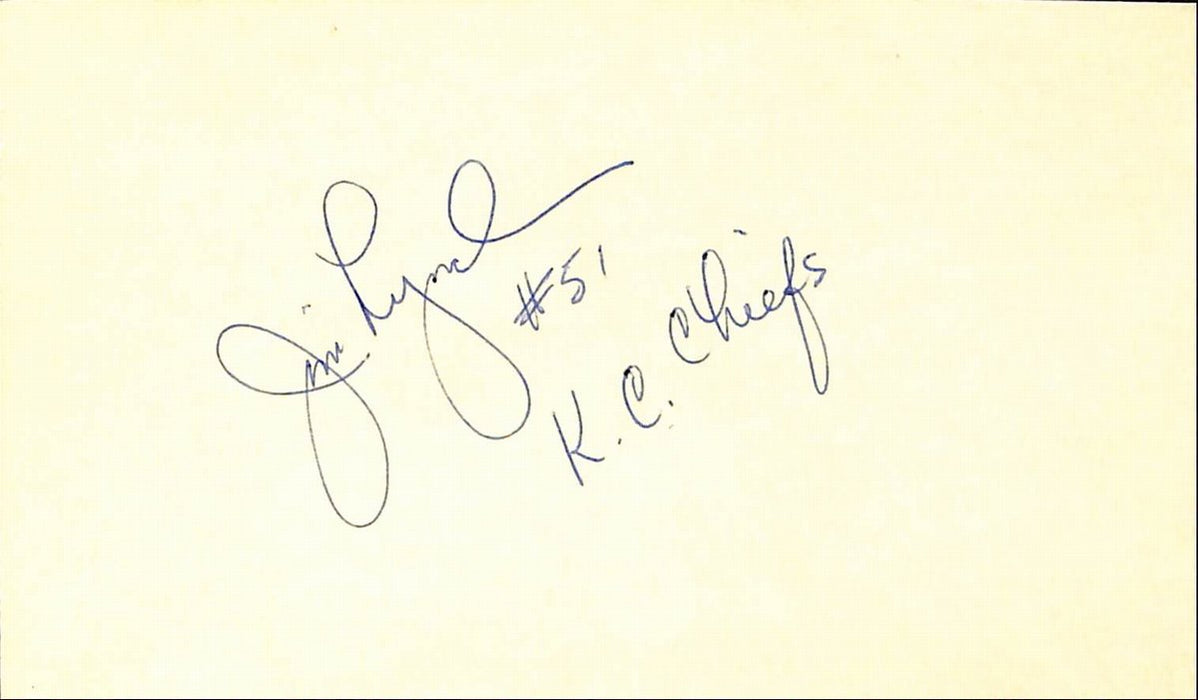 Jim Lynch
#51
K.C. Chiefs